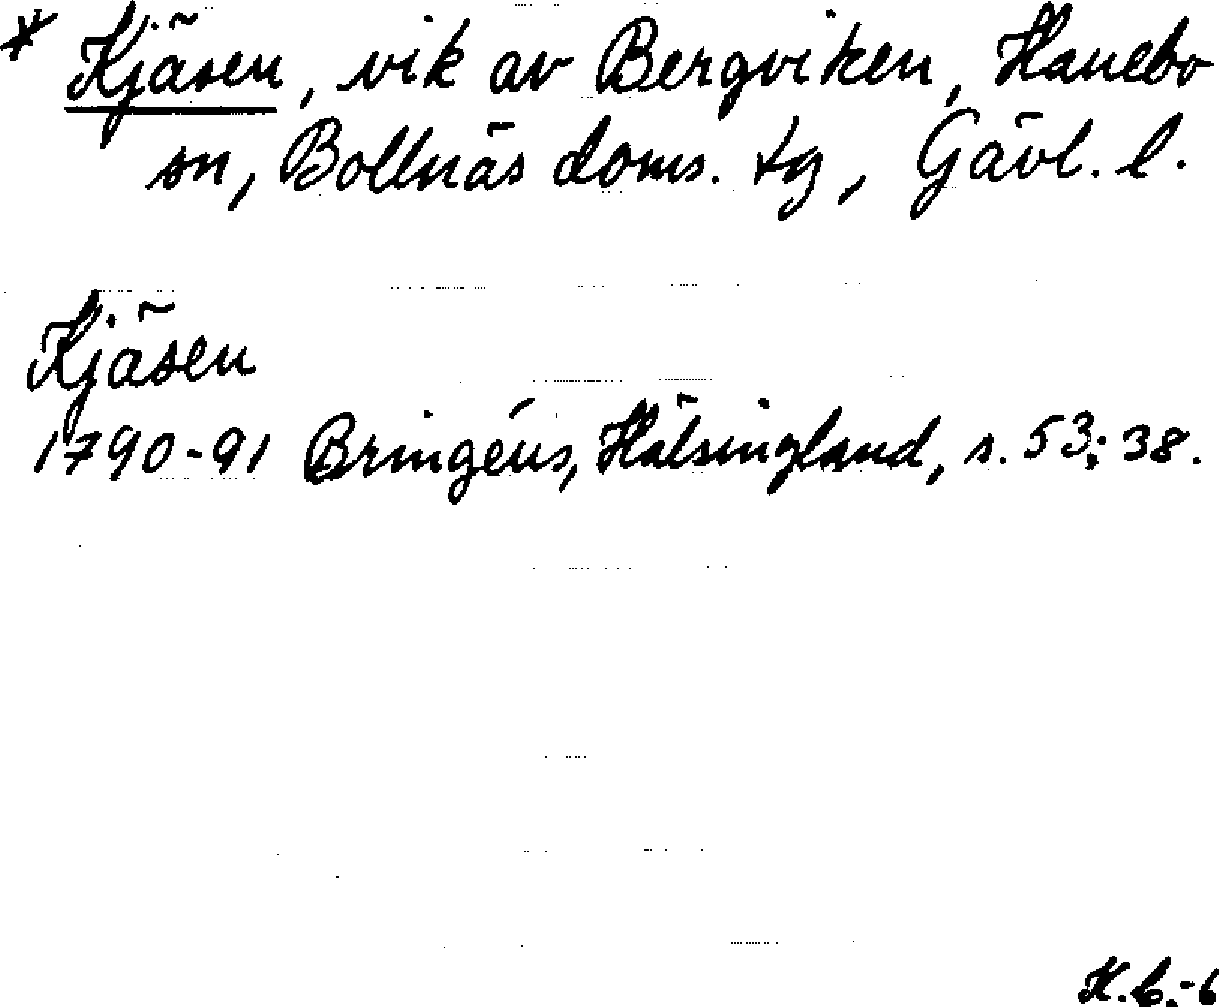 * Kjäsen, vik av Bergviken, Hanebo
sn, Bollnäs doms. tg, Gävl. l.
Kjäsen
1790-91 Bringéus, Hälsingland, s. 53; 38.